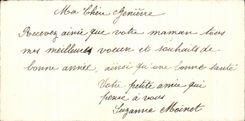 Ma Chère Denière
Recevez ainsi que votre maman tous
mes meilleurs voeux et souhaits de
bonne année, ainsi qu'une bonne santé
Votre petite amie qui
pense à vous
Suzanne Moinet